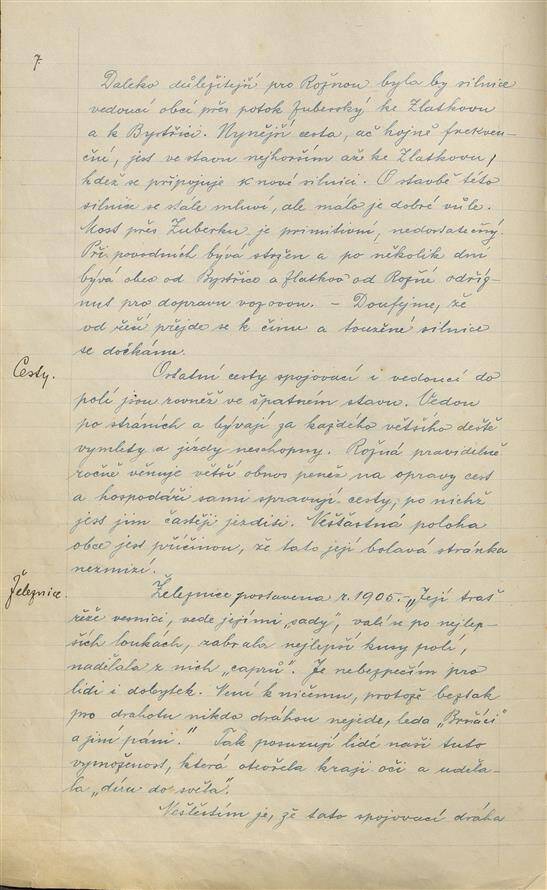 7
Daleko důležitejší pro Rožnou byla by silnice
vedoucí obcí přes potok Zuberský ke Zlatkovu
a k Bystřici. Nynější cesta, ač hojně frekven-
čně, jest ve stavu nejhorším až ke Zlatkovu,
kdež se připojuje k nové silnici. O stavbě této
silnice se stále mluví, ale málo je dobré vůle.
Most přes Zuberku je primitivní, nedostatečný.
Při povodních bývá stržen a po několik dní
bývá obec od Bystřice a Zlatkov od Rožné odříg-
nut pro dopravu vozovou. – Doufejme, že
od řečí přejde se k činu a toužené silnice
se dočkáme.
Cesty.
Ostatní cesty spojovací i vedoucí do
polí jsou rovněž ve špatném stavu. Vedou
po stráních a bývají za každého většího deště
vymlety a jízdy neschopny. Rožná pravidelně
ročně věnuje větší obnos peněz na opravy cest
a hospodáři sami spravují cesty, po nichž
jest jim častěji jezditi. Nešťastná poloha
obce jest příčinou, že tato její bolavá stránka
nezmizí.
Železnice.
Železnice postavena r. 1905. – „Její trať
řeže vesnici, vede jejími „sady“, valí se po nejlep-
ších loukách, zabrala nejlepší kusy polí,
nadělala z nich „caprů“. Je nebezpečím pro
lidi i dobytek. Není k ničemu, protože beztak
pro drahotu nikdo dráhou nejede, leda „Brňáci“
a jiní páni.“ Tak posuzují lidé naši tuto
vymoženost, která otevřela kraji oči a uděla-
la „díru do světa“.
Neštěstím je, že tato spojovací dráha